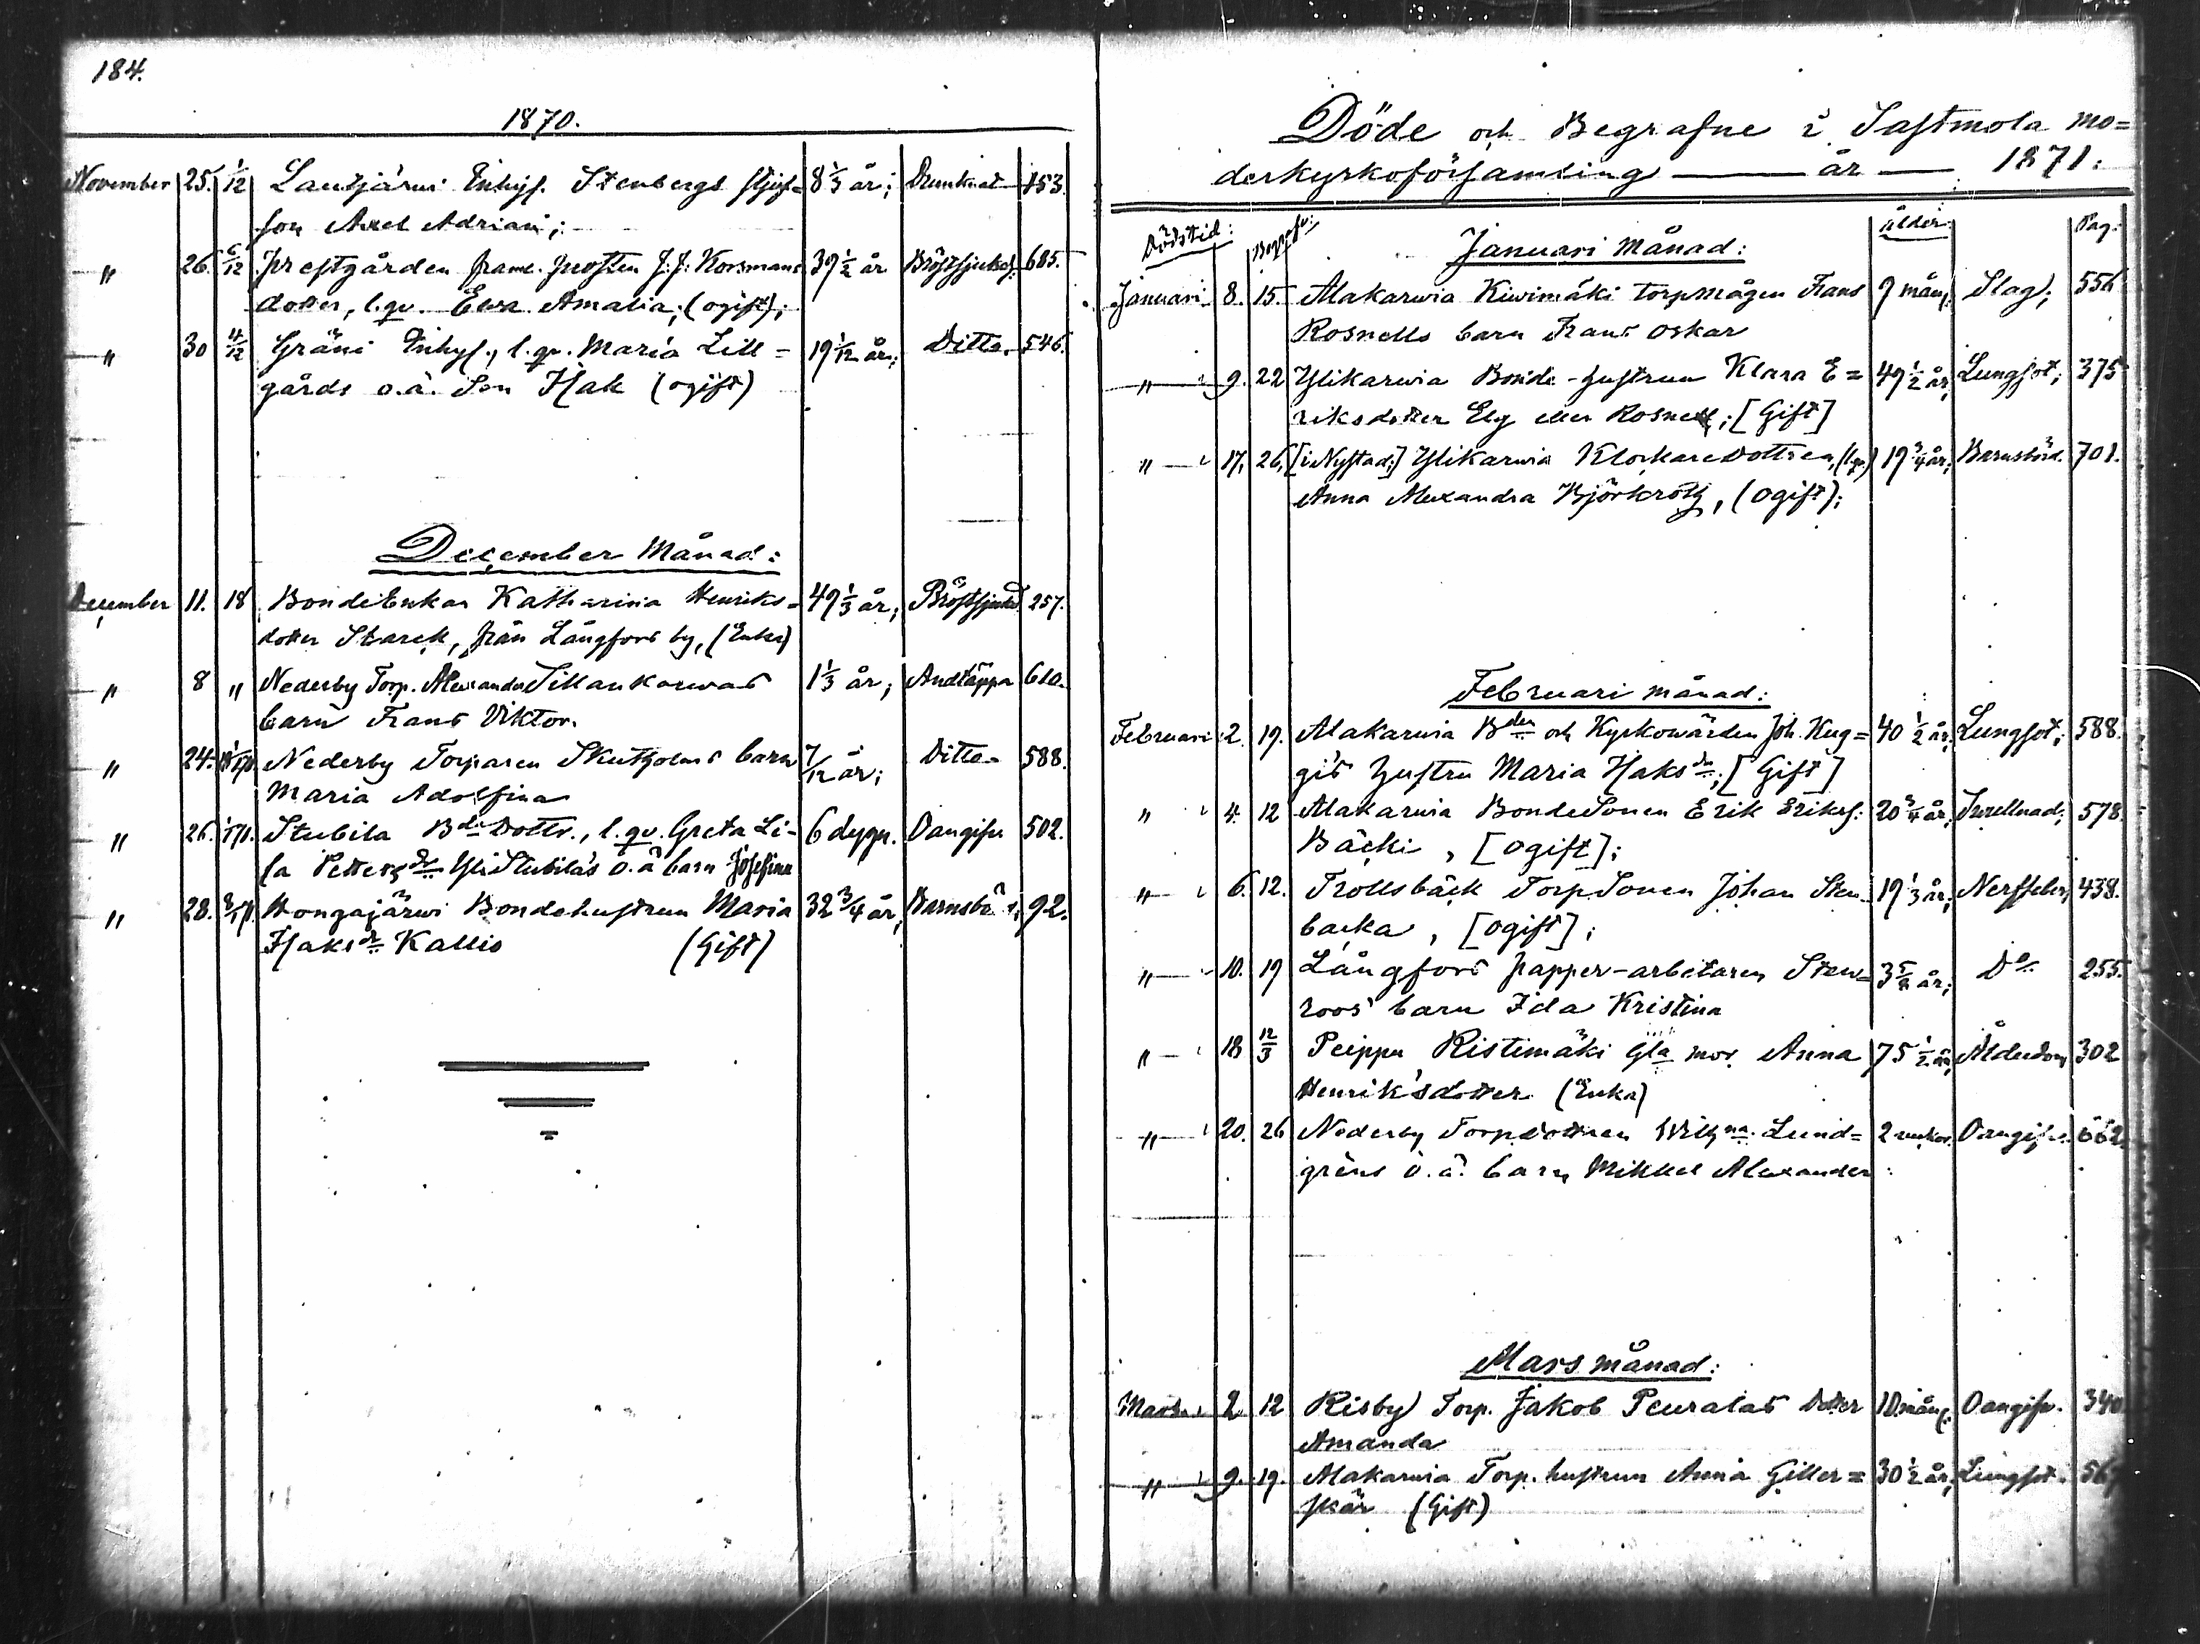 184.
1870.
November 25. 1/12 Lautjärwi Inhys. Stenbergs styf= 8 1/3 år; Drunknat 153.
son Axel Adrian;
" 26. 6/12 Prestgården fram. prosten J. J. Korsmans 39 1/2 år Bröstsjukd. 685.
dotter, l. qv. Ewa Amalia; (ogift);
" 30 4/12 Gräni Inhys., l. qv. Maria Lill= 19 1/12 år; Ditto. 546.
gårds o. ä. Son Isak (ogift)
December Månad:
December 11. 18 BondeEnkan Katharina Henriks= 49 1/3 år; Bröstsjukd. 257.
dotter Starck, från Långfors by, (Enka)
" 8 " Nederby Torp. Alexander Sillankorwas 1 1/3 år; Andtäppa 610.
barn Frans Viktor.
" 24. Nederby Torparen Skutholms barn 7/12 år; Ditto- 588.
Maria Adolfina
" 26. 1/1 71. Stubila Bde Dottr., l. qv. Greta Li- 6 dygn. Oangifv. 502.
sa Petters dr YliStubilas o. ä barn Josefina
" 28. 8/1 71. Hongajärwi Bondehustrun Maria 32 3/4 år, Barnsbörd; 92.
Isaks dr Kallio (Gift)
Döde och Begrafne i Sastmola mo=
derkyrkoförsamling — år — 1871:
Dödstid: Begrafn: Januari Månad: ålder: Pag:
Januari 8. 15. Alakarwia Kiwimäki torpmågen Frans 9 mån; Slag; 556
Rosnells barn Frans Oskar
" 9. 22 Ylikarwia Bonde-hustrun Klara E= 49 1/2 år, Lungsot; 375
riksdotter Elg eller Rosnell; [Gift]
" 17. 26. [i Nystad;] Ylikarwia Klockaredottren, (l.qv.) 19 3/4 år; Barnsbörd. 701.
Anna Alexandra Björkroth, (ogift);
Februari månad:
Februari 2. 19. Alakarwia Bden och Kyrkowärden Joh. Kug= 40 1/2 år; Lungsot; 588.
gis hustru Maria Isaks dr; [Gift]
" 4. 12 Alakarwia BondeSonen Erik Eriks. 20 3/4 år; Swullnad; 578.
Bäcki, [ogift];
" 6. 12. Trollsbäck TorpSonen Johan Sten= 19 1/3 år; Nerffeber; 438.
backa, [ogift];
" 10. 19 Långfors papper-arbetaren Sten= 3 år; Do 255.
roos' barn Ida Kristina
" 18 12/3 Peippu Ristimäki Gla mor Anna 75 1/2 år, Ålderdom 302
Henriksdotter (Enka)
" 20. 26 Nederby Torpdottren Wilhna. Lund= 2 veckor. Oangifv. 662
gréns o. ä. barn Mikkel Alexander
Mars månad:
Mars 2 12 Risby Torp. Jakob Peuralas dotter 10 mån. Oangifv. 340
Amanda
" 9. 19. Alakarwia Torp. hustrun Anna Giller= 30 1/2 år, Lungsot. 567
skär (Gift)